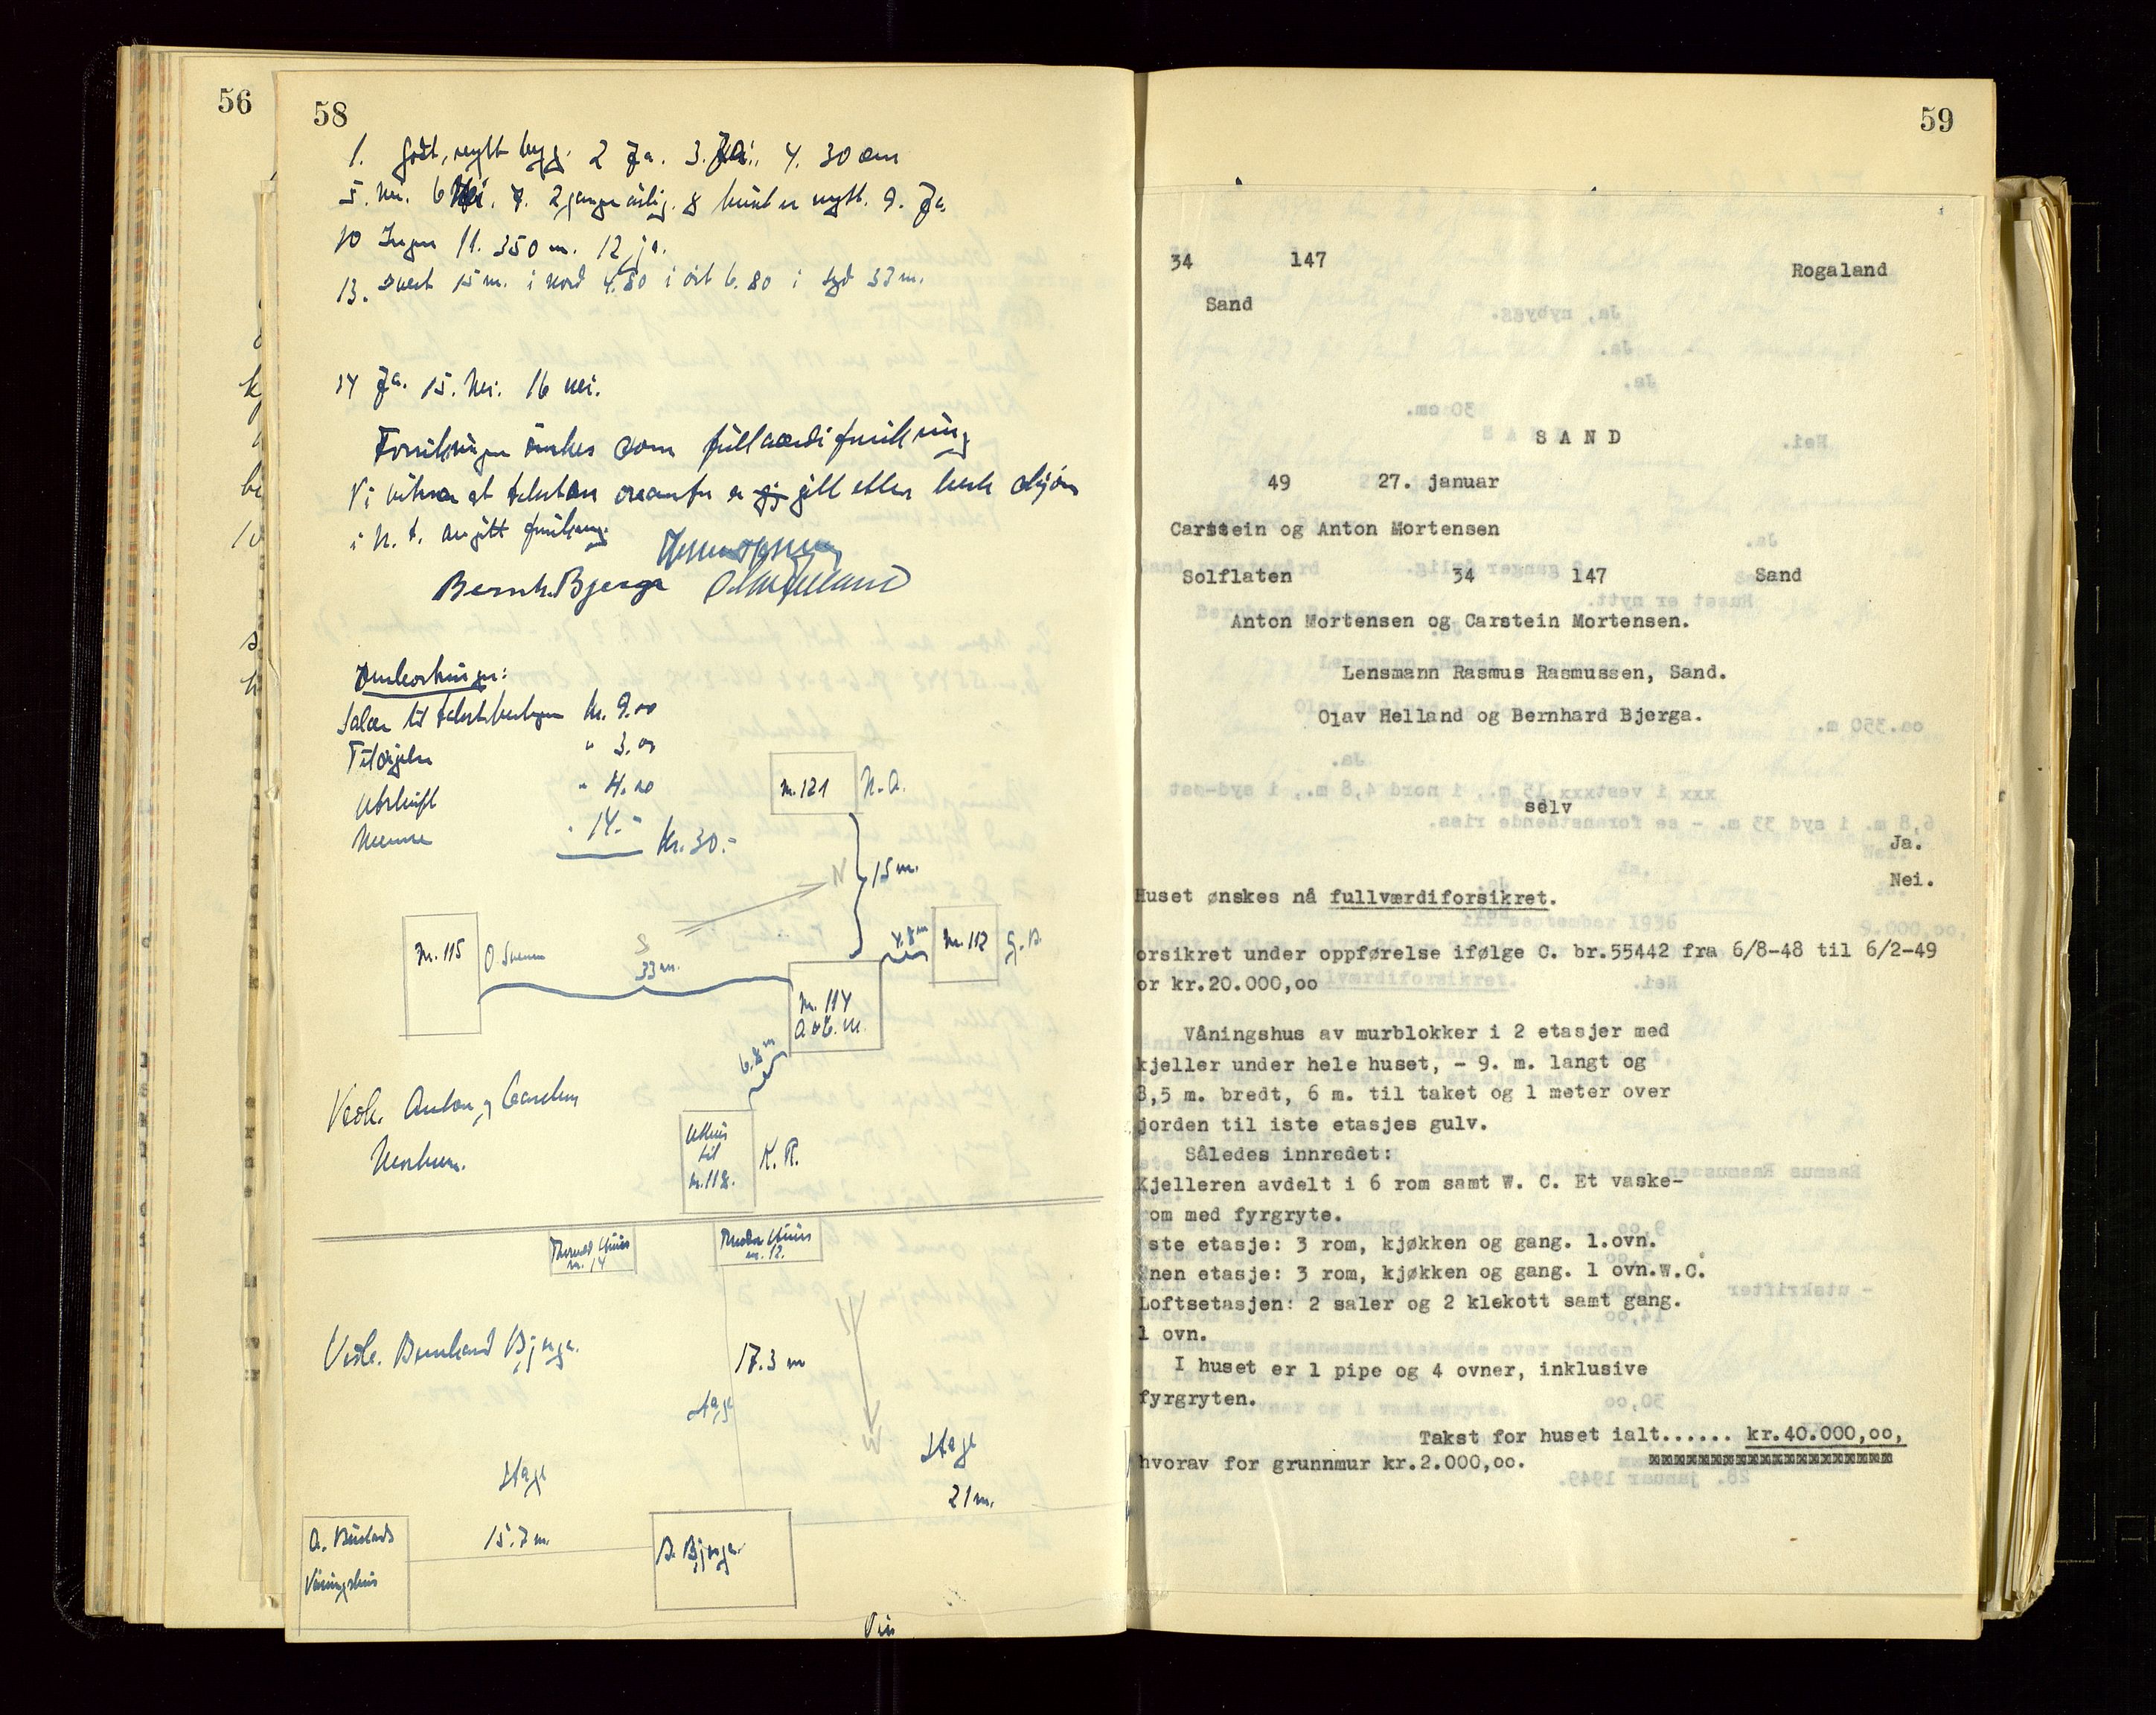 56
58
1. Godt, nytt bygg. 2 Ja. 3. Ja. 4. 30 cm
5. Nei. 6 Nei. 7. 2 ganger årlig. 8 huset er nytt. 9. Ja.
10 Ingen 11. 350 m. 12 ja.
13. i vest 15 m. i nord 4.80 i öst 6.80 i syd 33 m.
14 Ja. 15. Nei. 16 nei.
Forsikringen önskes som fullverdiforsikring
Vi vitner at taksten ovenfor er gitt etter beste skjön
i h. t. avgitt forsikring.
Bernh. Bjerga Olav Helland
Omkostninger:
Salær til takstbestyrer kr. 9.00
Tilsigelse " 3.00
Utskrift " 4.00
Mennene " 14.- kr. 30.-
m. 121 N. A.
N
15 m.
m. 115
S
33 m.
4.8 m
m. 112 G. A.
m. 114
A & C. M.
6.8 m
Uthus
til
m. 118.
K. R.
Vedk. Anton og Carsten
Mortensen.
Uthus
m. 14
Uthus
m. 12.
Vedk. Bernhard Bjerga.
17.3 m
Hage
N
Hage
21 m.
Hage
15.7 m
A.
Våningshus
B. Bjerga
59
34 147 Rogaland
Sand
S A N D
49 27. januar
Carstein og Anton Mortensen
Solflaten 34 147 Sand
Anton Mortensen og Carstein Mortensen.
Lensmann Rasmus Rasmussen, Sand.
Olav Helland og Bernhard Bjerga.
selv
Ja.
Nei.
Huset ønskes nå fullværdiforsikret.
orsikret under oppførelse ifølge C. br.55442 fra 6/8-48 til 6/2-49
or kr.20.000,oo
Våningshus av murblokker i 2 etasjer med
kjeller under hele huset, - 9. m. langt og
8,5 m. bredt, 6 m. til taket og 1 meter over
jorden til iste etasjes gulv.
Således innredet:
Kjelleren avdelt i 6 rom samt W. C. Et vaske-
rom med fyrgryte.
1ste etasje: 3 rom, kjøkken og gang. 1.ovn.
2nen etasje: 3 rom, kjøkken og gang. 1 ovn.W.C.
Loftsetasjen: 2 saler og 2 klekott samt gang.
1 ovn.
I huset er 1 pipe og 4 ovner, inklusive
fyrgryten.
Takst for huset ialt...... kr.40.000,oo,
hvorav for grunnmur kr.2.000,oo.